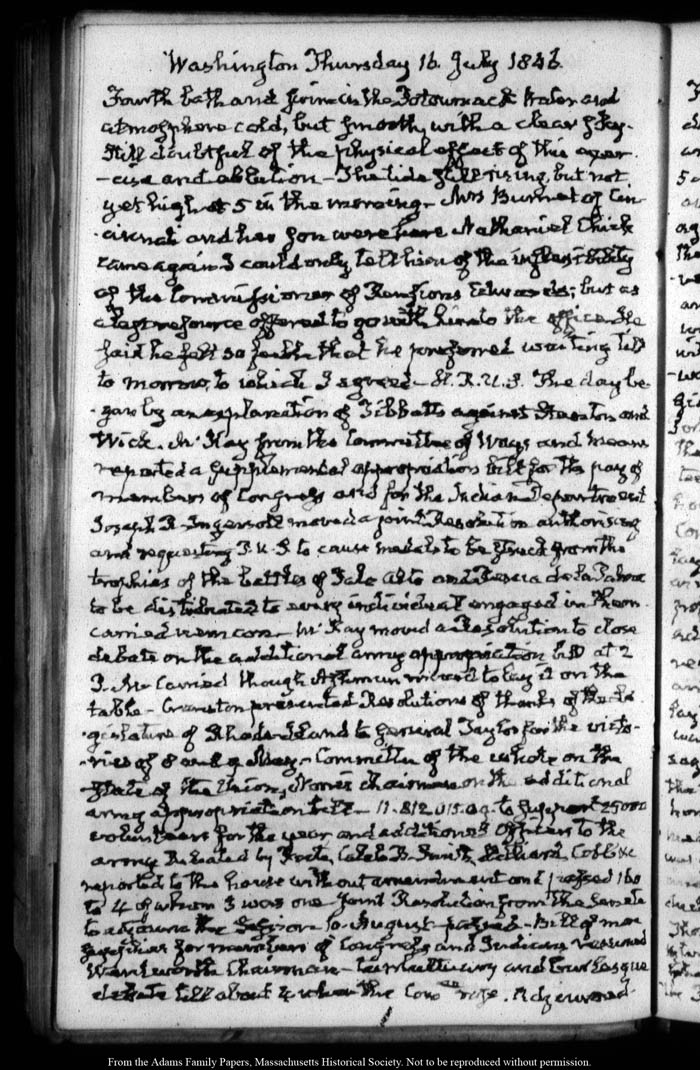 Washington Thursday 16. July 1846.
Fourth bath and swim in the Potowmack Water and
atmosphere cold, but smooth, with a clear sky.
Still doubtful of the physical effect of this exer-
-cise and ablution - The tide still rising, but not
yet high at 5 in the morning - Mrs Burnet of Cin-
-cinnati and her son were here Nathaniel Chick
came again I could only tell him of the inflexibility
of the Commissioner of Pensions Edwards; but as
a last resource offered to go with him to the office. He
said he felt so feeble that he preferred waiting till
to morrow, to which I agreed - H.R.U.S. The day be-
-gan by an explanation of Tibbatts against Stanton and
Wick. Mc Kay from the Committee of Ways and Means
reported a supplemental appropriation bill for the pay of
members of Congress and for the Indian Department
Joseph R. Ingersoll moved a joint Resolution authorising
and requesting P.U.S. to cause medals to be struck from the
trophies of the battles of Palo Alto and Resaca de la Palma
to be distributed to every individual engaged in them.
carried nem con - Mc Kay moved a Resolution to close
debate on the additional army appropriation bill at 2
P.M. Carried though Ashmun moved to lay it on the
table - Cranston presented Resolutions of thanks of the Le-
-gislature of Rhode Island to General Taylor for the victo-
-ries of 8 and 9 May - Committee of the whole on the
State of the Union, Norris chairman on the additional
army appropriation bill - 11.812.015.09. to support 25000
volunteers for the year and additional officers to the
army Debated by Root, Caleb B. Smith, Cobb &c
reported to the house without amendment and passed 160
to 4 of whom I was one Joint Resolution from the Senate
to adjourn the Session 10. August - Bill of
for members of Congress and Indians resumed
Wentworth Chairman - tumultuary and burlesque
debate till about 4 when the Comee rose. Adjourned.
From the Adams Family Papers, Massachusetts Historical Society. Not to be reproduced without permission.